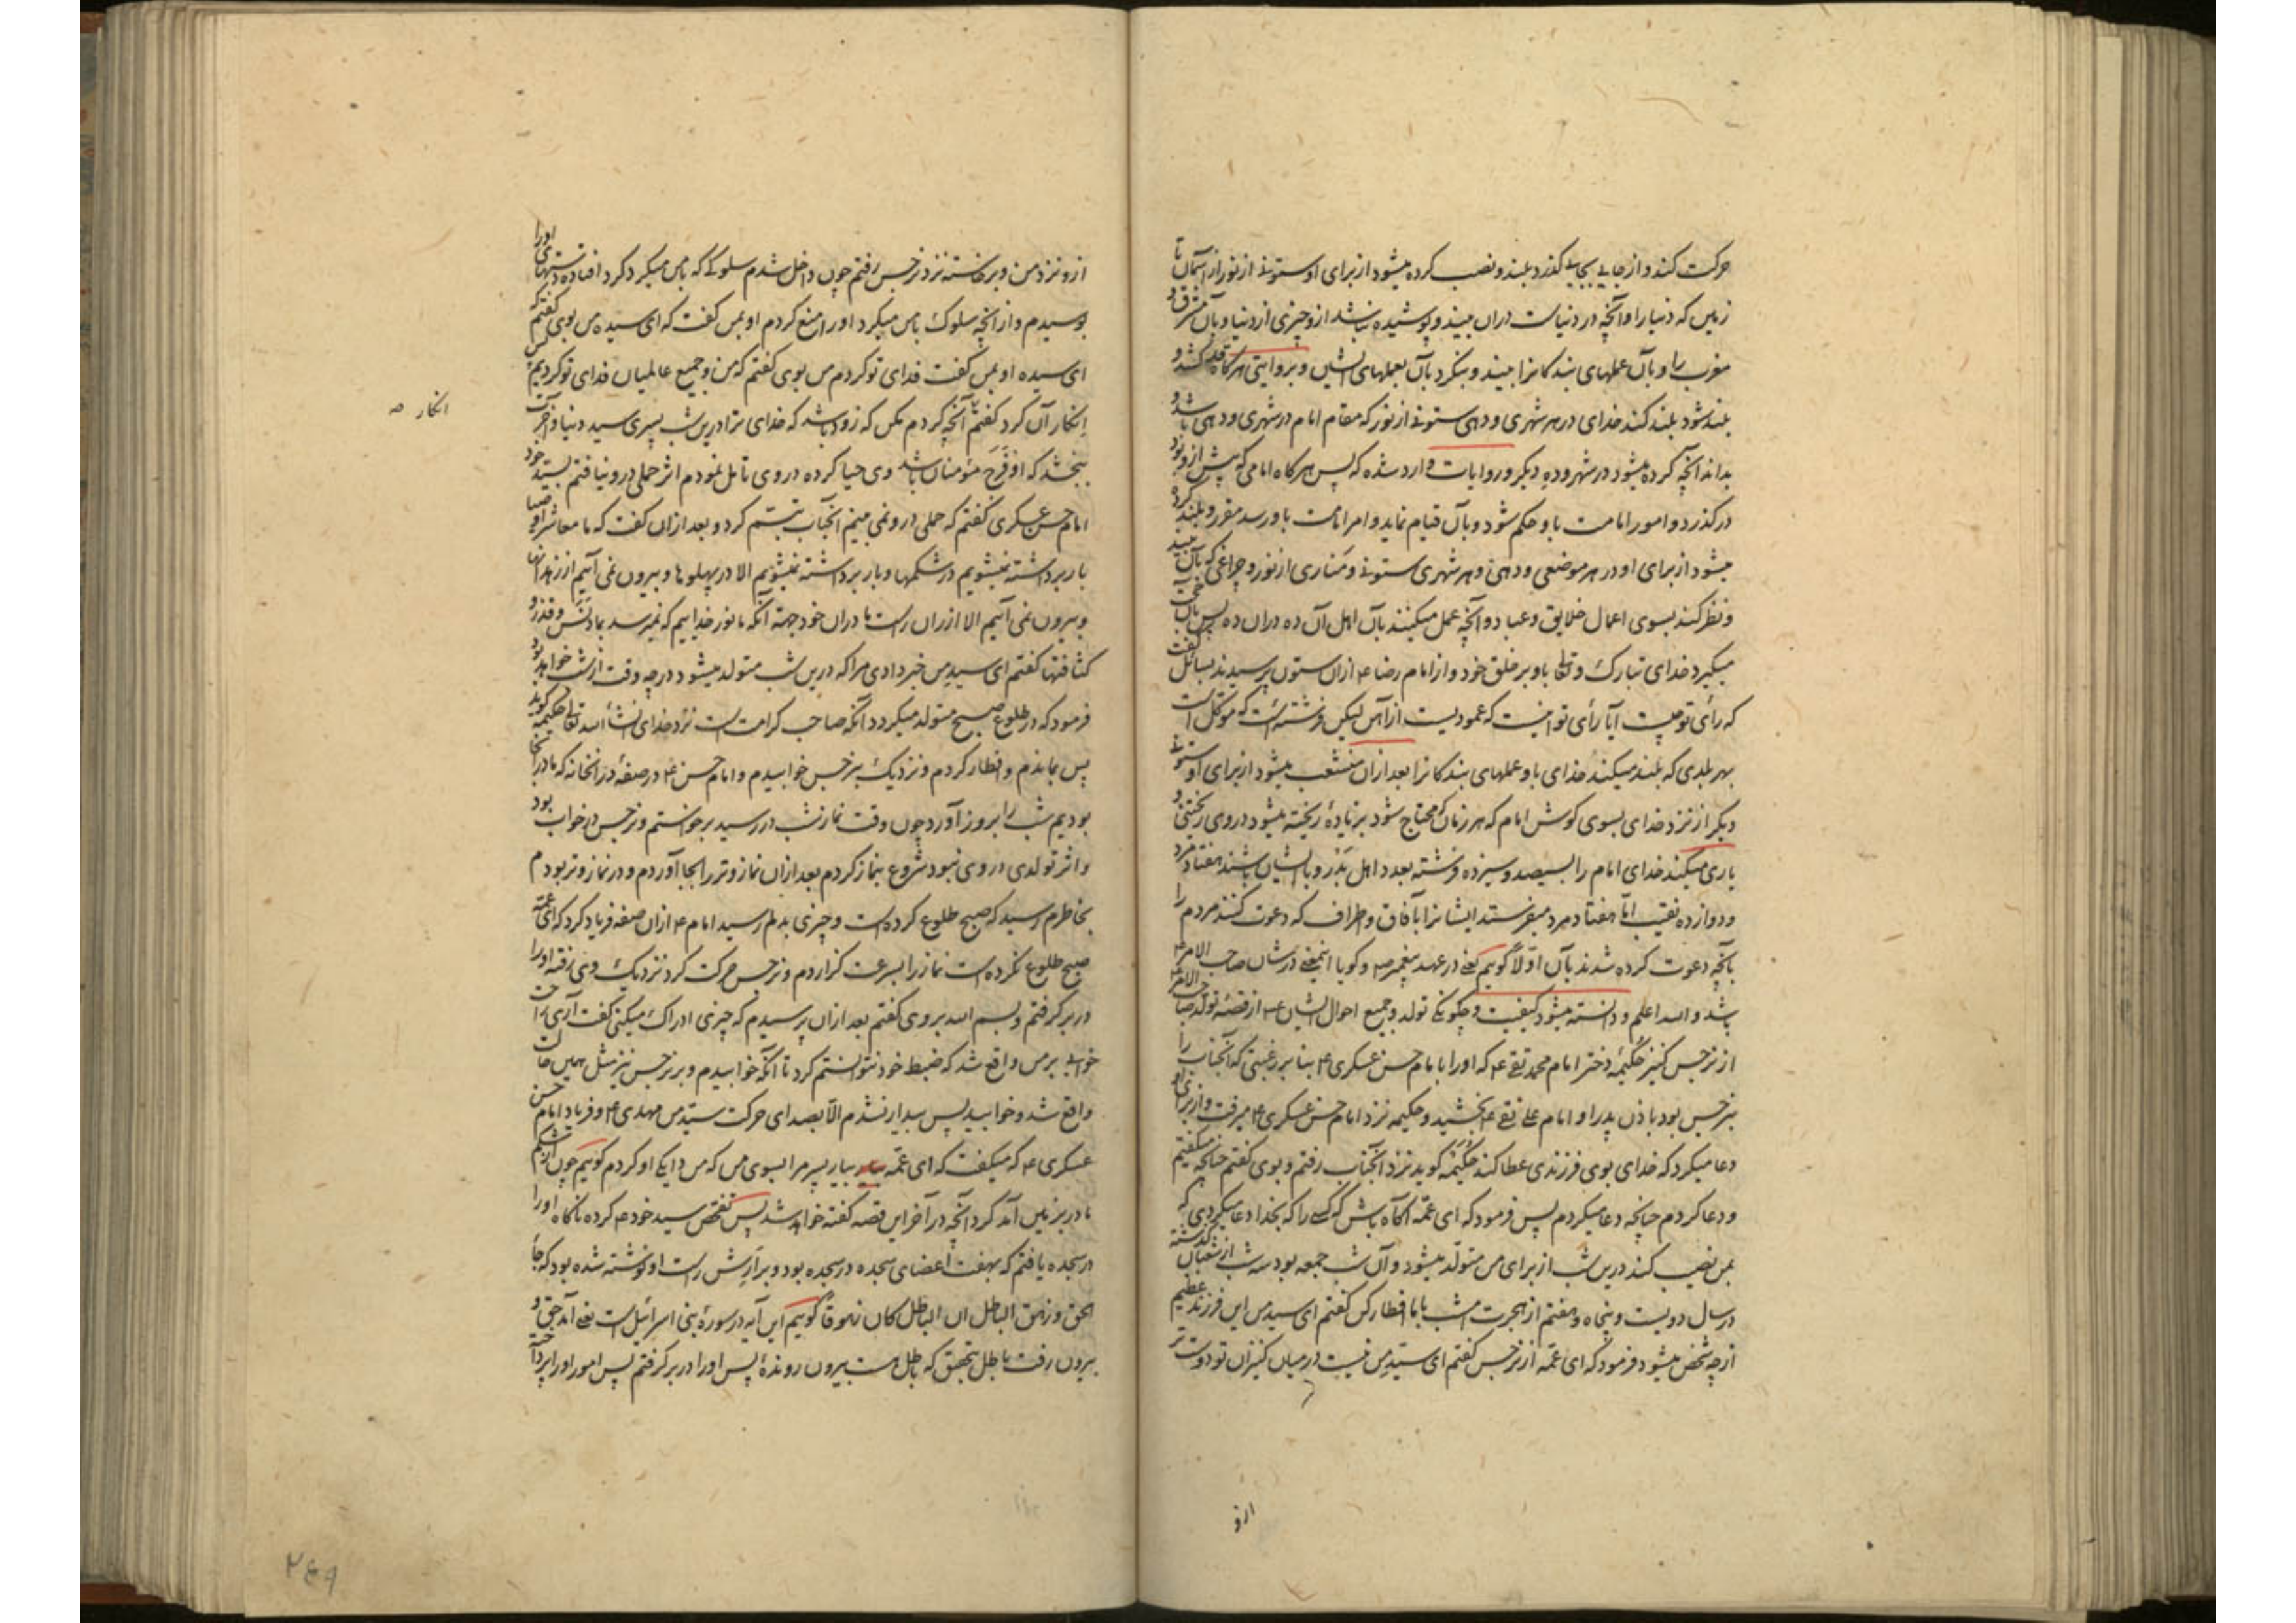 حرکت کند و از جایی بجایی گذرد بلند و نصب کرده میشود از برای او ستونی از نور از آسمان تا
زمین که دنیا را و آنچه در دنیاست دران بیند و پوشیده نباشد ازو چیزی از دنیا و بآن مشرق و
مغرب را و بآن عملهای بندکانرا بیند و بنکرد بآن بعملهای ایشان و بروایتی هرکاه قد کشد و
بلند شود بلند کند خدای در هر شهری و دهی ستونی از نور که مقام امام در شهری و دهی باشد و
بداند آنچه کرده میشود در شهر و ده دیکر و روایات وارد شده که پس هرکاه امامی که پیش ازو بود
درکذرد و امور امامت باو حکم شود و بآن قیام نماید و امر امامت باو رسد مقرر و بلند کرده
میشود از برای او در هر موضعی و دهی و هر شهری ستونی و مناری از نور و چراغی که بآن بیند
و نظر کند بسوی اعمال خلایق و عباد و آنچه عمل میکنند بآن اهل آن ده دران ده پس بآن حجت
میکیرد خدای تبارک و تعالی باو بر خلق خود و از امام رضا ع ازان ستون پرسیدند بسائل کفت
که رأی تو چیست آیا رأی تو اینست که عمودیست از آهن لیکن فرشته‌ئست که موکل است
بهر بلدی که بلند میکند خدای باو عملهای بندکانرا بعد ازان منشعب میشود از برای او ستونی
دیکر از نزد خدای بسوی کوش امام که هر زمان که محتاج شود بزیادهٔ ریخته میشود در وی ریختنی و
یاری میکند خدای امام را بسیصد و سیزده فرشته بعدد اهل بدر و با ایشان باشند هفتاد مرد
و دوازده نقیب اما هفتاد مرد میفرستد ایشانرا بآفاق و اطراف که دعوت کنند مردم را
بآنچه دعوت کرده شدند بآن اولا کوییم یعنی در عهد پیغمبر ص و کویا اینمعنی در شان صاحب الامر ع
باشد والله اعلم و دانسته میشود کیفیت و چکونکی تولد و جمیع احوال ایشان ع از قصهٔ تولد صاحب الامر ع
از نرجس کنیز حکیمه دختر امام محمد تقی ع که اورا بامام حسن عسکری ع بنا بر رغبتی که آنجناب را
بنرجس بود باذن پدر او امام علی نقی ع بخشید و حکیمه نزد امام حسن عسکری ع میرفت و از برای او
دعا میکرد که خدای بوی فرزندی عطا کند حکیمه کوید نزد آنجناب رفتم و بوی کفتم چنانچه میکفتم
و دعا کردم چنانچه دعا میکردم پس فرمود که ای عمه آکاه باش که کسی را که بخدا دعا میکردی که
بمن نصیب کند درین شب از برای من متولد میشود و آن شب جمعه بود سه شب از شعبان کذشته
در سال دویست و پنجاه و هفتم از هجرت امشب با ما افطار کن کفتم ای سید من این فرزند عظیم
از چه شخص میشود فرمود که ای عمه از نرجس کفتم ای سید من نیست در میان کنیزان تو دوست تر
ازو
ازو نزد من و برخاسته نزد نرجس رفتم چون داخل شدم سلوکی که با من میکرد کرد افتاده دستهای اورا
بوسیدم و از آنچه سلوک با من میکرد اورا منع کردم او بمن کفت که ای سیده من بوی کفتم که
ای سیده او بمن کفت فدای تو کردم من بوی کفتم که من و جمیع عالمیان فدای تو کردیم پس
انکار آن کرد کفتم آنچه کردم مکن که زود باشد که خدای ترا درین شب پسری سید دنیا و آخرت
ببخشد که او فرح مؤمنان باشد وی حیا کرده در وی تأمل نمودم اثر حملی درو نیافتم بسید خود
امام حسن عسکری کفتم که حملی درو نمی بینم آنجناب تبسم کرد و بعد ازان کفت که ما معاشر اوصیا
بار برداشته نمیشویم در شکمها و بار برداشته نمیشویم الا در پهلوها و بیرون نمی آییم از زهدانها
و بیرون نمی آییم الا از ران راست مادران خود جهته آنکه ما نور خداییم که نمیرسد بما دنس و قذر و
کثافتها کفتم ای سید من خبر دادی مرا که درین شب متولد میشود در چه وقت از شب خواهد بود
فرمود که در طلوع صبح متولد میکردد آنکه صاحب کرامت است نزد خدای انشاء الله تعالی حکیمه کوید
پس بماندم و افطار کردم و نزدیک بنرجس خوابیدم و امام حسن ع در صفهٔ در آنخانه که ما در آنجا
بودیم شب را بروز آورد چون وقت نماز شب در رسید برخواستم و نرجس در خواب بود
و اثر تولدی در وی نبود شروع بنماز کردم بعد ازان نماز وتر را بجا آوردم و در نماز وتر بودم
بخاطرم رسید که صبح طلوع کرده است و چیزی بدلم رسید امام ع ازان صفه فریاد کرد که ای عمه
صبح طلوع نکرده است نماز را بسرعت کزاردم و نرجس حرکت کرد نزدیک وی رفته اورا
در بر کرفتم و بسم الله بر وی کفتم بعد ازان پرسیدم که چیزی ادراک میکنی کفت آری
خوابی بر من واقع شد که ضبط خود نتوانستم کرد تا آنکه خوابیدم و بر نرجس نیز مثل همین حالت
واقع شد و خوابید پس بیدار نشدم الا بصدای حرکت سید من مهدی ع و فریاد امام حسن
عسکری ع که میکفت که ای عمه بیار پسر مرا بسوی من که من دایکی او کردم کوییم چون از شکم
مادر بزمین آمد کرد آنچه در آخر این قصه کفته خواهد شد پس تفحص سید خود ع کرده ناکاه اورا
در سجده یافتم که بهفت اعضای سجده در سجده بود و بر ارش راست او نوشته شده بود که جاء
الحق و زهق الباطل ان الباطل کان زهوقا کوییم این آیه در سورهٔ بنی اسرائیل است یعنی آمد حق و
بیرون رفت باطل بتحقیق که باطل هست بیرون روندهٔ پس اورا در بر کرفتم پس امور اورا پرداخته
انکار صه
۲۴۹